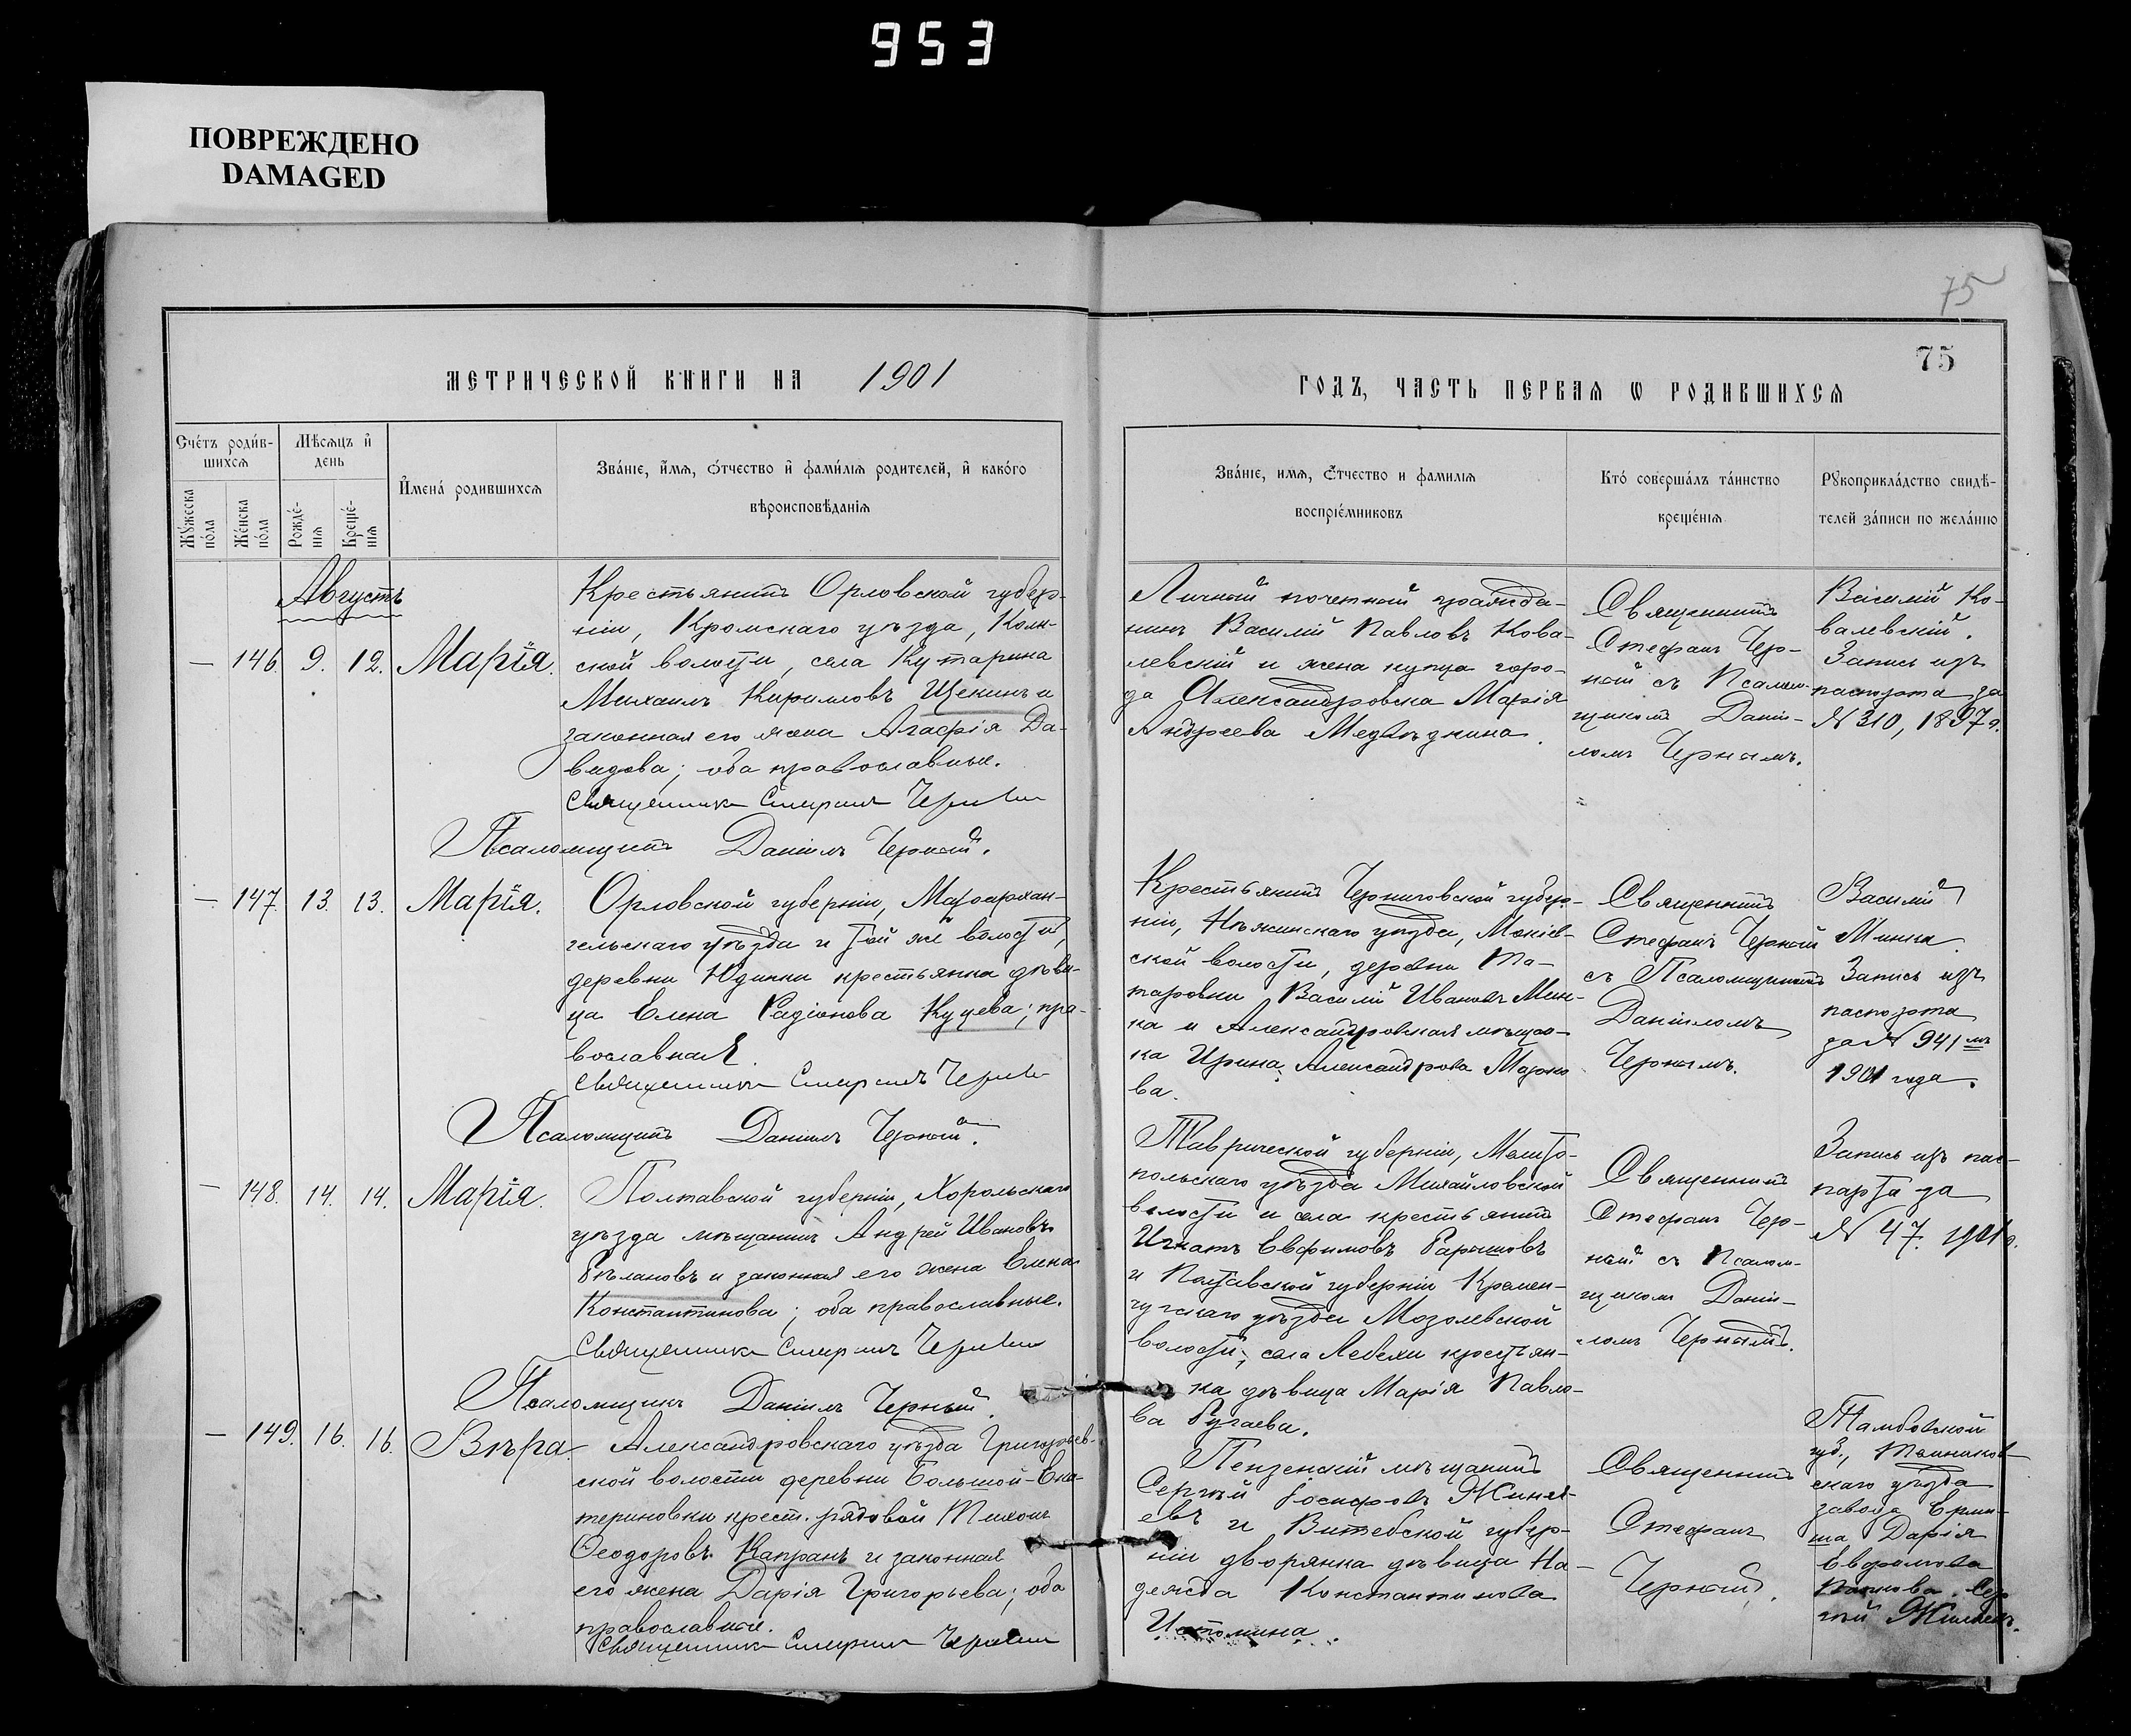 953
ПОВРЕЖДЕНО
DAMAGED
75
75
МЕТРИЧЕСКОЙ КНИГИ НА 1901
ГОДЪ, ЧАСТЬ ПЕРВАѦ Ѡ РОДИВШИХСѦ
Счетъ родив-
шихсѧ
Мѣсѧцъ и
день
Мужеска
пола
Женска
пола
Рожде-
нїѧ
Креще-
нїѧ
Имена родившихсѧ
Званїе, имѧ, отчество и фамилїѧ родителей, и какого
вѣроисповѣданїѧ
Званїе, имѧ, отчество и фамилїѧ
воспрїемниковъ
Кто совершалъ таинство
крещенїѧ
Рукоприкладство свидѣ-
телей записи по желанїю
Августъ
— 146. 9. 12. Марія.
Крестьянинъ Орловской губер-
ніи, Кромскаго уѣзда,
ской волости, села Кутарина
Михаилъ Кириловъ Щекинъ и
законная его жена Агафія Да-
видова; оба православные.
Священникъ Стефанъ Черный
Псаломщикъ Даніилъ Черный.
Личный почетный гражда-
нинъ Василій Павловъ Кова-
левскій и жена купца горо-
да Александровска Марія
Андреева Медвѣдкина.
Священникъ
Стефанъ Чер-
ный съ Псалом-
щикомъ Дані-
ломъ Чернымъ.
Василій Ко-
валевскій.
Запись изъ
паспорта за
№ 310, 1897 г.
— 147. 13. 13. Марія.
Орловской губерніи, Малоархан-
гельскаго уѣзда и той же волости,
деревни Юдинки крестьянка дѣви-
ца Елена Радіонова Куцева; пра-
вославная.
Священникъ Стефанъ Черный
Псаломщикъ Даніилъ Черный.
Крестьянинъ Черниговской губер-
ніи, Нѣжинскаго уѣзда, Моніев-
ской волости, деревни Та-
таровки Василій Ивановъ Мин-
ка и Александровская мѣщан-
ка Ирина Александрова Марко
ва.
Священникъ
Стефанъ Черный
съ Псаломщикомъ
Даніиломъ
Чернымъ.
Василій
Минка.
Запись изъ
паспорта
за № 941мъ
1901 года.
— 148. 14. 14. Марія.
Полтавской губерніи, Хорольскаго
уѣзда мѣщанинъ Андрей Ивановъ
Бѣлановъ и законная его жена Елена
Константинова; оба православные.
Священникъ Стефанъ Черный
Псаломщикъ Даніилъ Черный.
Таврической губерніи, Мелито-
польскаго уѣзда Михайловской
волости и села крестьянинъ
Игнатъ Евфимовъ
и Полтавской губерніи Кремен-
чугскаго уѣзда Мозолевской
волости, села крестьян-
ка дѣвица Марія Павло-
ва Бугаева.
Священникъ
Стефанъ Чер-
ный съ Псалом-
щикомъ Дані-
ломъ Чернымъ.
Запись изъ пас-
парта за
№ 47. 1901 г.
— 149. 16. 16. Вѣра.
Александровскаго уѣзда Григорьев-
ской волости деревни Большой-Ека-
териновки крест. рядовой Тихонъ
Ѳеодоровъ Капранъ и законная
его жена Дарія Григорьева; оба
православные.
Священникъ Стефанъ Черный
Пензенскій мѣщанинъ
Сергѣй Іосифовъ Жиля-
евъ и Витебской губер-
ніи дворянка дѣвица На-
дежда Константинова
Истомина.
Священникъ
Стефанъ
Черный.
Тамбовской
губ., Темников-
скаго уѣзда
завода Ерми-
ша Дарія
Евфимова
Сер
гѣй